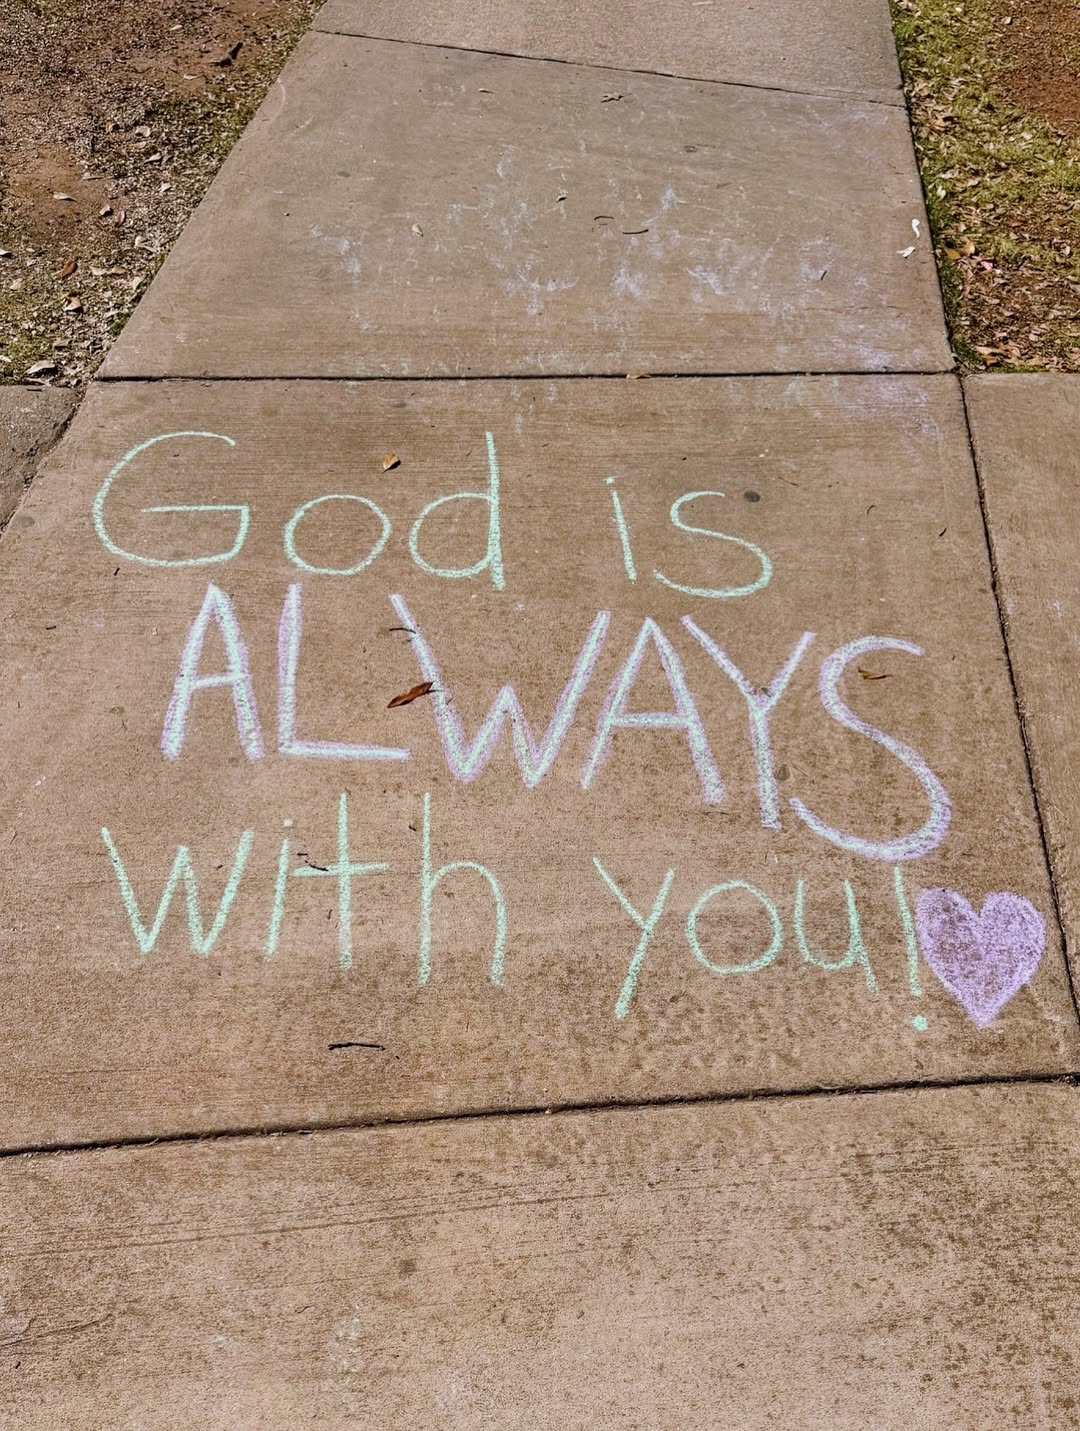 God is
ALWAYS
with you!